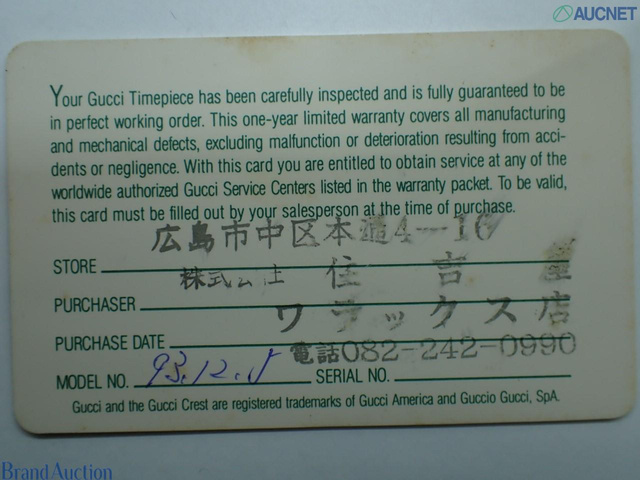 AUCNET
Your Gucci Timepiece has been carefully inspected and is fully guaranteed to be
in perfect working order. This one-year limited warranty covers all manufacturing
and mechanical defects, excluding malfunction or deterioration resulting from acci-
dents or negligence. With this card you are entitled to obtain service at any of the
worldwide authorized Gucci Service Centers listed in the warranty packet. To be valid,
this card must be filled out by your salesperson at the time of purchase.
広島市中区本通4-10
STORE 株式会社 住吉屋
PURCHASER ワラックス店
PURCHASE DATE 電話082-242-0990
MODEL NO. 93.12. SERIAL NO.
Gucci and the Gucci Crest are registered trademarks of Gucci America and Guccio Gucci, SpA.
Brand Auction